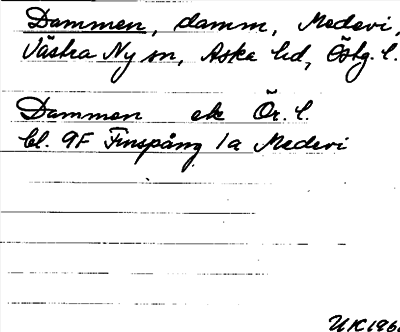 Dammen, damm, Medevi,
Västra Ny sn, Aska hd, Östg. l.
Dammen ek Ör. l.
bl. 9F Finspång 1a Medevi
UK196